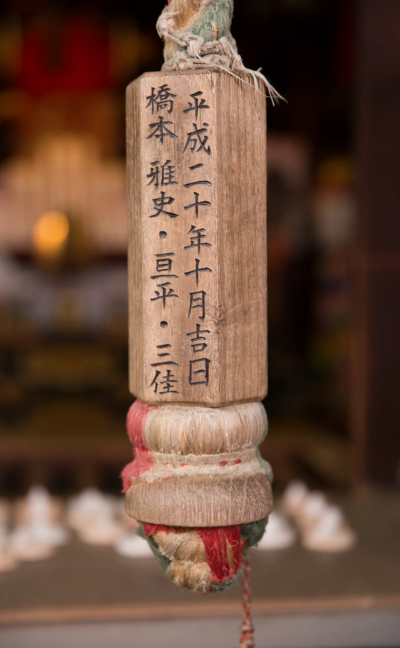 平成二十年十月吉日
橋本 雅史・亘平・三佳